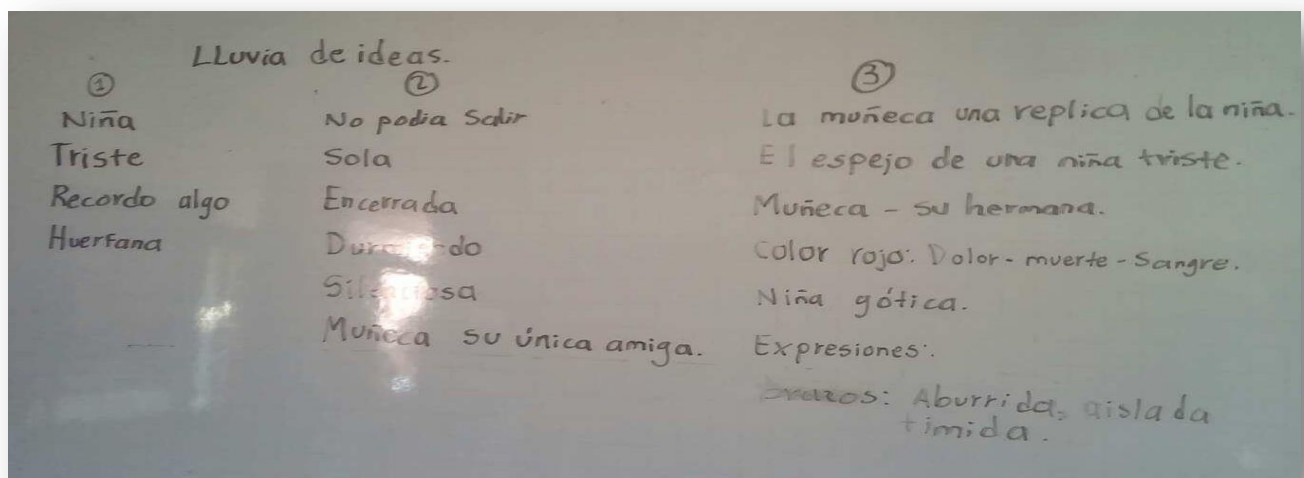 LLuvia de ideas.
①
Niña
Triste
Recordo algo
Huerfana
②
No podia Salir
Sola
Encerrada
Muñeca su única amiga.
③
La muñeca una replica de la niña.
El espejo de una niña triste.
Muñeca - su hermana.
Color rojo: Dolor - muerte - Sangre.
Niña gótica.
Expresiones:
Aburrida, aislada
timida.